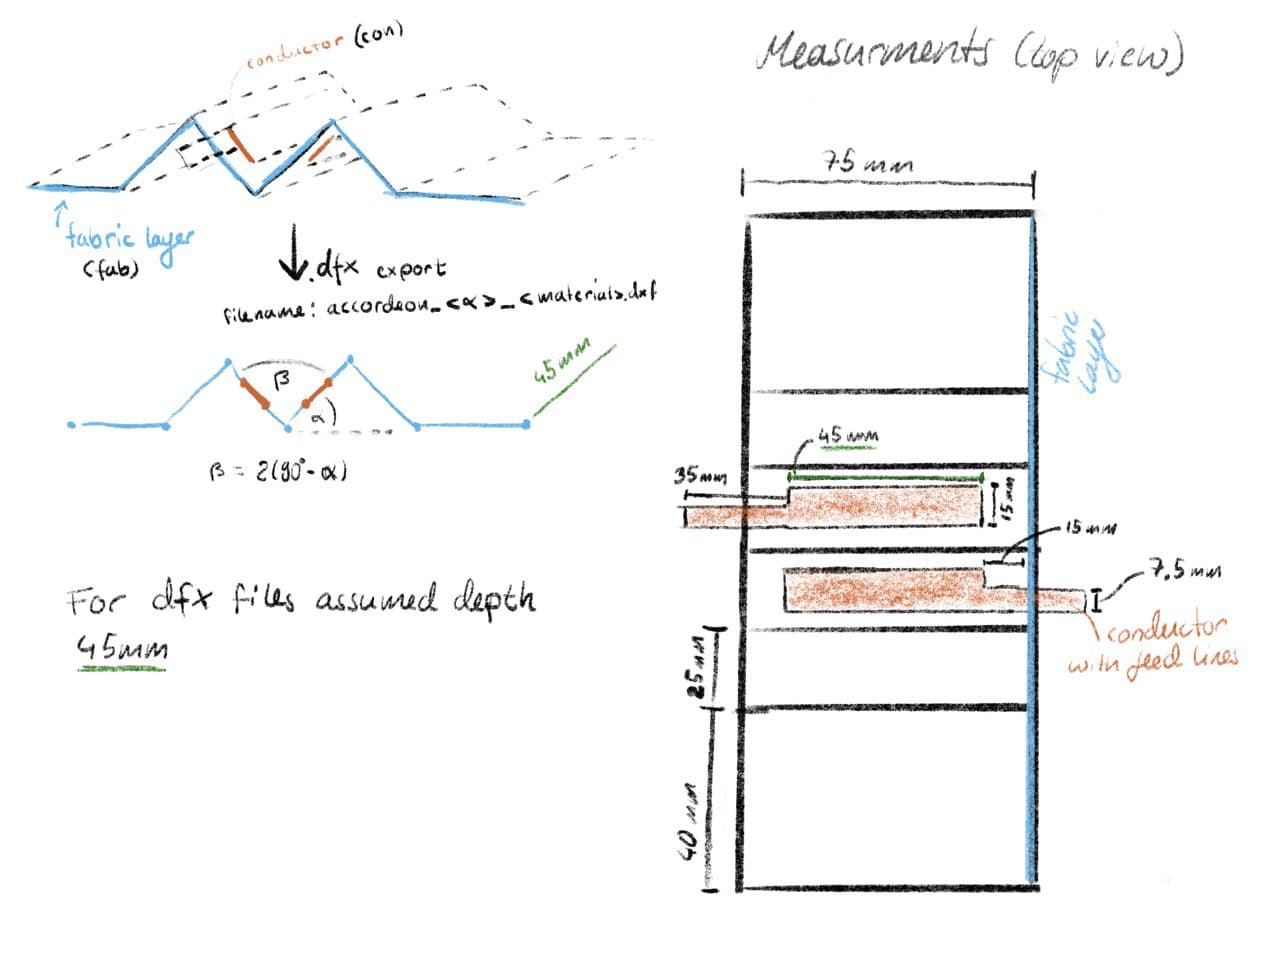 conductor (con)
fabric layer
(fab)
.dfx export
filename: accordeon_<α>_<materials>.dxf
45mm
β
α
β = 2(90°-α)
For dfx files assumed depth
45mm
Measurments (top view)
75mm
fabric
layer
45mm
35mm
15mm
15mm
7.5mm
conductor
with feed lines
25mm
40mm